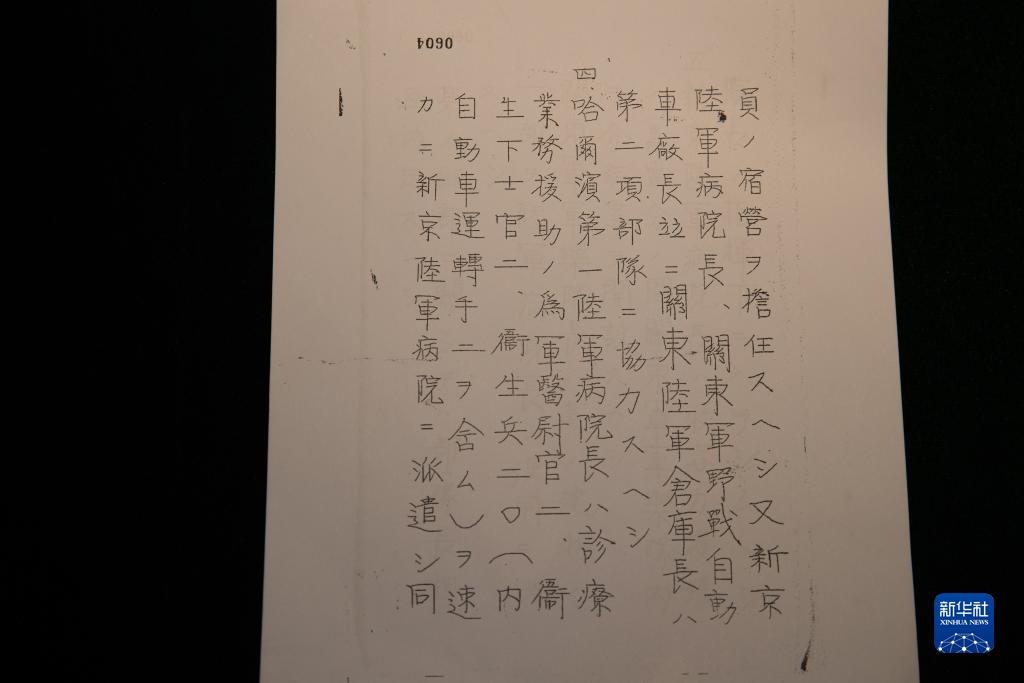 0604
員ノ宿營ヲ擔任スヘシ又新京
陸軍病院長、關東軍野戰自動
車廠長竝ニ關東陸軍倉庫長ハ
第二項部隊ニ協力スヘシ
四、哈爾濱第一陸軍病院長ハ診療
業務援助ノ爲軍醫尉官二、衞
生下士官二、衞生兵二〇(内
自動車運轉手二ヲ含ム)ヲ速
カニ新京陸軍病院ニ派遣シ同
新华社
XINHUA NEWS